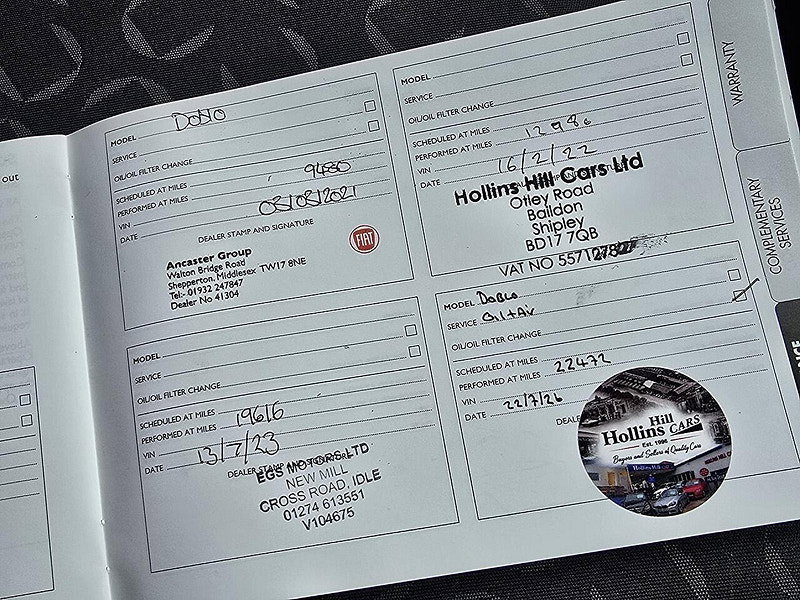 out
MODEL Doblo
SERVICE
OIL/OIL FILTER CHANGE
SCHEDULED AT MILES
PERFORMED AT MILES 9480
VIN
DATE 03/03/2021
DEALER STAMP AND SIGNATURE
Ancaster Group
Walton Bridge Road
Shepperton, Middlesex TW17 8NE
Tel:- 01932 247847
Dealer No 41304
FIAT
MODEL
SERVICE
OIL/OIL FILTER CHANGE
SCHEDULED AT MILES
PERFORMED AT MILES 12986
VIN
DATE 16/2/22
Hollins Hill Cars Ltd
Otley Road
Baildon
Shipley
BD17 7QB
VAT NO
MODEL
SERVICE
OIL/OIL FILTER CHANGE
SCHEDULED AT MILES
PERFORMED AT MILES 19616
VIN
DATE 13/7/23
DEALER STAMP AND
EGS MOTORS LTD
NEW MILL
CROSS ROAD, IDLE
01274 613551
V104675
MODEL Doblo
SERVICE Oil + Air
OIL/OIL FILTER CHANGE
SCHEDULED AT MILES
PERFORMED AT MILES 22472
VIN
DATE 22/7/26
DEALE
Hollins Hill CARS
Est. 1996
Buyers and Sellers of Quality Cars
WARRANTY
COMPLEMENTARY
SERVICES